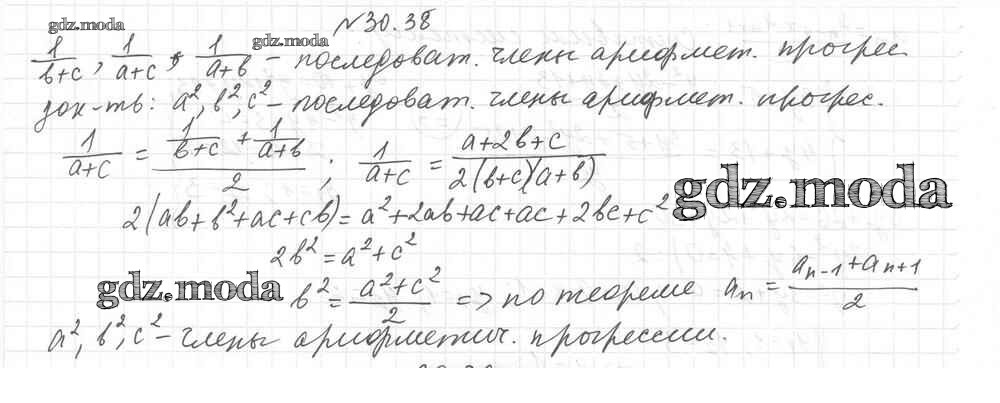 gdz.moda
№30.38
1/(в+c), 1/(a+c), 1/(a+в) gdz.moda – последоват. члены арифмет. прогрес
док-ть: a², в², c² – последоват. члены арифмет. прогрес.
1/(a+c) = (1/(в+c) + 1/(a+в))/2 ; 1/(a+c) = (a+2в+c)/(2(в+c)(a+в))
gdz.moda
2(aв+в²+ac+cв)=a²+2aв+ac+ac+2вc+c²
2в²=a²+c²
gdz.moda
в²=(a²+c²)/2 => по теореме aₙ=(aₙ₋₁+aₙ₊₁)/2
a², в², c² – члены арифметич. прогрессии.